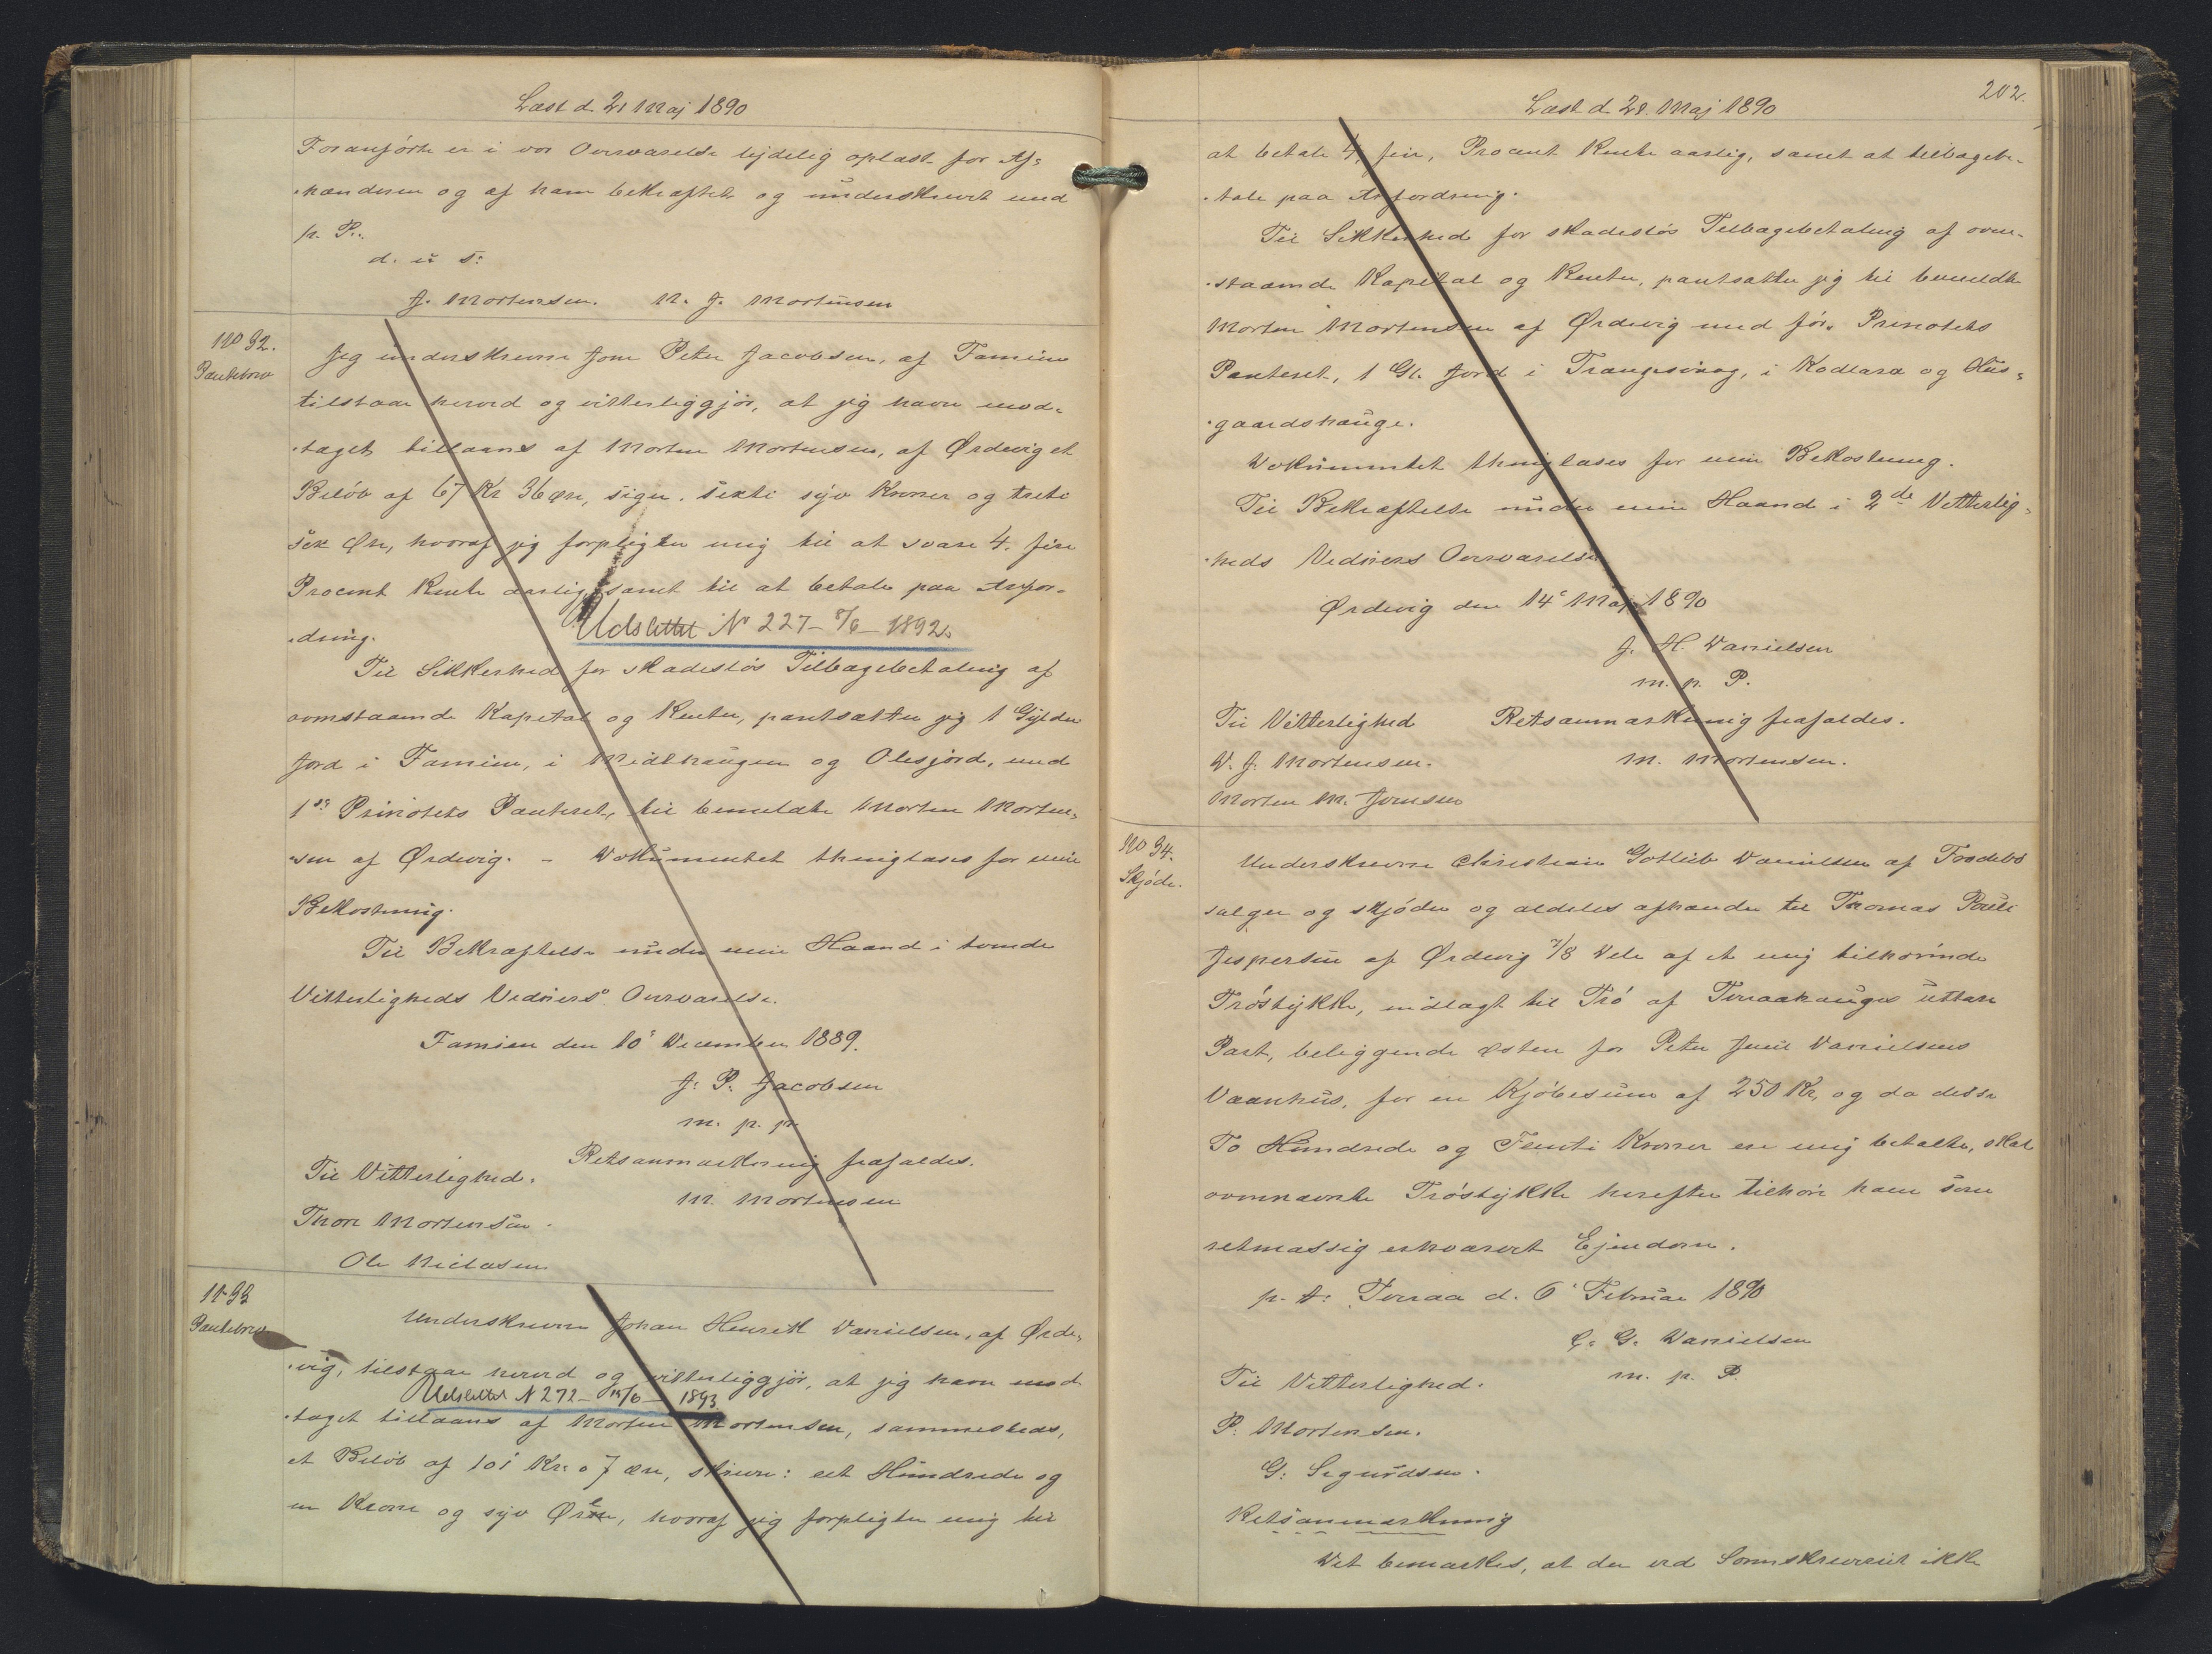 Læst d. 21 Maj 1890
Foranførte er i vor Overværelse lydelig oplæst for Af-
hænderen og af ham bekræftet og underskrevet med
p. P.
d. u s:
J. Mortensen. M. J. Mortensen
No 32.
Pantebrev
Jeg underskrevne Jone Peter Jacobsen, af Famien
tilstaar herved og vitterliggjør, at jeg haver mod-
taget tillaans af Morten Mortensen, af Ørdevig et
Beløb af 67 Kr 36 øre, siger. sexti syv Kroner og treti
sex Øre, hvoraf jeg forpligter mig til at svare 4. fire
Procent Rente aarlig samt til at betale paa Anfor-
dring.
Udslettet No 227 - 8/6 - 1892.
Til Sikkerhed for skadesløs Tilbagebetaling af
ovenstaaende Kapital og Renter, pantsætter jeg 1 Gylden
Jord i Famien, i Midlhaugen og Olesjord, med
1ste Prioritets Panteret, til bemeldte Morten Morten-
sen af Ørdevig. - Dokumentet thinglæses for min
Bekostning.
Til Bekræftelse under min Haand i tvende
Vitterligheds Vidners Overværelse.
Famien den 10 December 1889.
J. P. Jacobsen
m. p. p.
Retsanmærkning frafaldes.
M. Mortensen
Til Vitterlighed.
Thore Mortensen.
Ole Niclasen
No 33
Pantebrev
Underskrevne Johan Henrik Danielsen, af Ørde-
vig, tilstaar herved og vitterliggjør, at jeg haver mod
Udslettet N 272 - 15/6 - 1893.
taget tillaans af Morten Mortensen, sammesteds,
et Beløb af 101 Kr. 07 øre, skriver: eet Hundrede og
en Krone og syv Øre, hvoraf jeg forpligter mig til
202.
Læst d 28. Maj 1890
at betale 4, fire, Procent Rente aarlig, samt at tilbagebe-
tale paa Anfordring.
Til Sikkerhed for skadesløs Tilbagebetaling af oven-
staaende Kapital og Renter, pantsætter jeg til bemeldte
Morten Mortensen af Ørdevig med før. Prioritets
Panteret, 1 Gl. Jord i Trangisvaag, i Kodlara og Hus-
gaardshauge.
Dokumentet thinglæses for min Bekostning.
Til Bekræftelse under min Haand i 2de Vitterlig-
heds Vidners Overværelse
Ørdevig den 14 Maj 1890
J. H. Danielsen
m. p. P.
Til Vitterlighed Retsanmærkning frafaldes.
D. J. Mortensen. M. Mortensen.
Morten M. Joensen
No 34.
Skjøde.
Underskrevne Christian Gotlieb Danielsen af Frodebø
sælger og skjøder og aldeles afhænder til Thomas Pouli
Jespersen af Ørdevig 7/8 Dele af et mig tilhørende
Trøstykke, indlagt til Trø af Tveraahauges uttare
Part, beliggende østen for Peter Juul Danielsens
Vaanhus, for en Kjøbesum af 250 Kr, og da disse
To Hundrede og Femti Kroner ere mig betalte, skal
ovennævnte Trøstykke herefter tilhøre ham som
retmæssig erhvervet Ejendom.
p. t. Tveraa d. 6 Februar 1890
C. G. Danielsen
m. p. P.
Til Vitterlighed.
P. Mortensen.
G. Sigurdsen.
Retsanmærkning
Det bemærkes, at der ved Sornskriveriet ikke